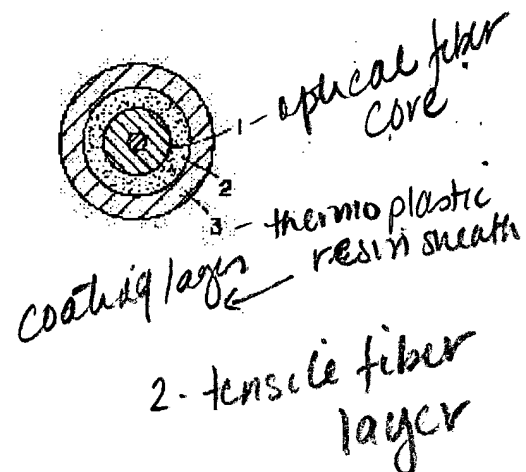 1 - optical fiber
core
2
3 - thermoplastic
resin sheath
coating layer ←
2. tensile fiber
layer